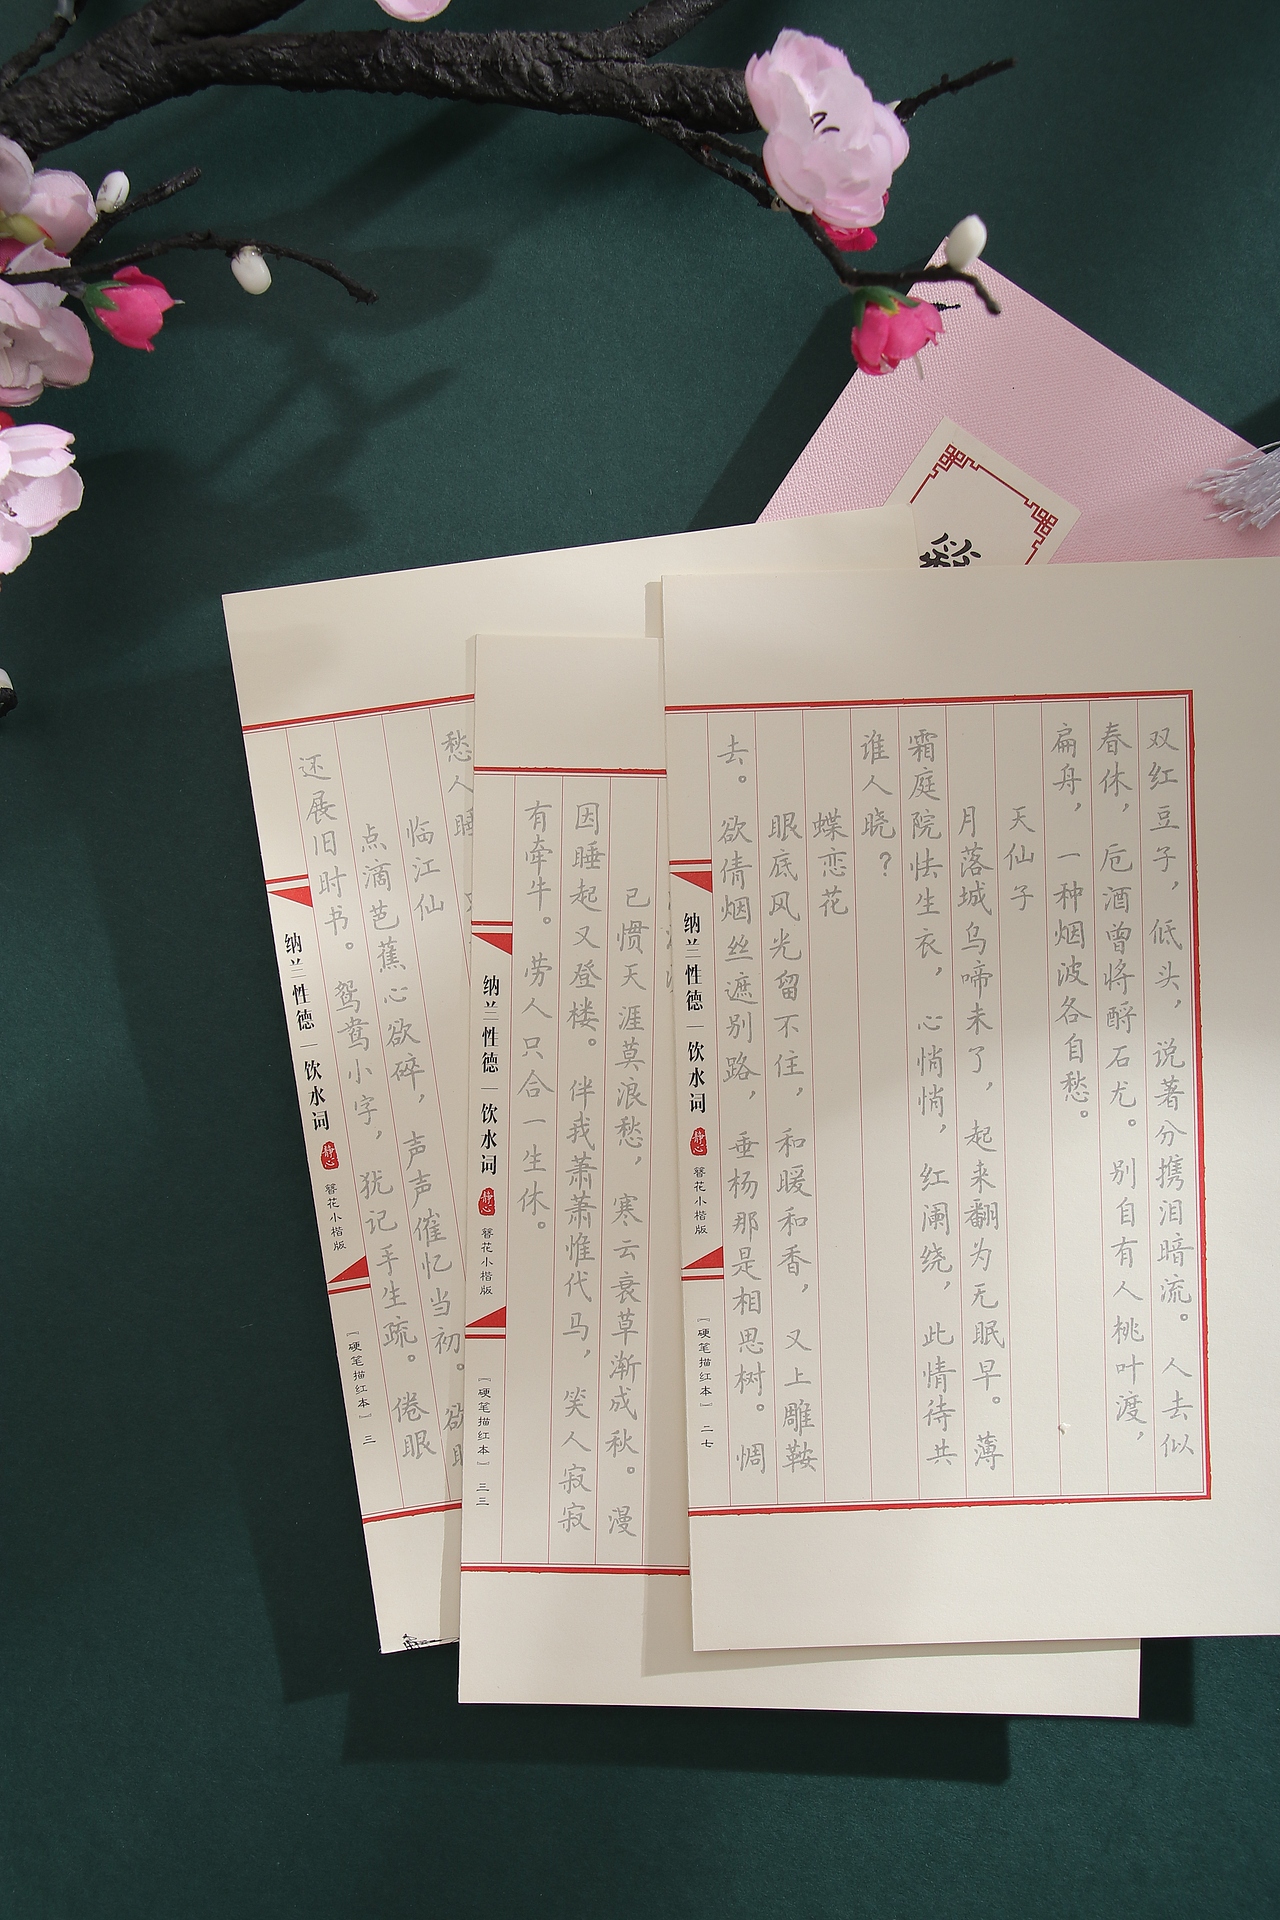 双红豆子，低头，说著分携泪暗流。人去似
春休，卮酒曾将酹石尤。别自有人桃叶渡，
扁舟，一种烟波各自愁。
天仙子
月落城乌啼未了，起来翻为无眠早。薄
霜庭院怯生衣，心悄悄，红阑绕，此情待共
谁人晓？
蝶恋花
眼底风光留不住，和暖和香，又上雕鞍
去。欲倩烟丝遮别路，垂杨那是相思树。惆
纳兰性德|饮水词 静心 簪花小楷版
『硬笔描红本』 二七
已惯天涯莫浪愁，寒云衰草渐成秋。漫
因睡起又登楼。伴我萧萧惟代马，笑人寂寂
有牵牛。劳人只合一生休。
纳兰性德|饮水词 静心 簪花小楷版
『硬笔描红本』 三三
愁人睡
临江仙
点滴芭蕉心欲碎，声声催忆当初。欲眠
还展旧时书。鸳鸯小字，犹记手生疏。倦眼
纳兰性德|饮水词 静心 簪花小楷版
『硬笔描红本』 三